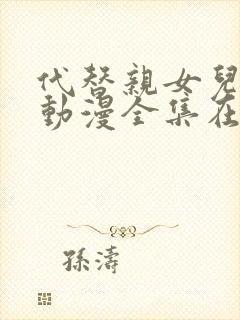 代替親女兒
動漫全集在
孫濤